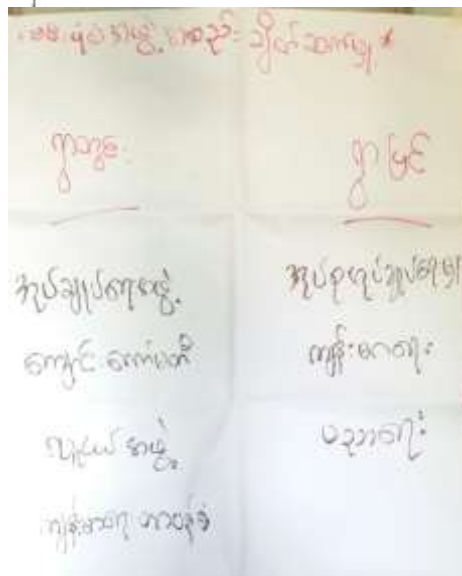 အဖွဲ့အစည်း ချိတ်ဆက်မှု *
ရွာတွင်း
ရွာပြင်
အုပ်ချုပ်ရေးအဖွဲ့
ကျောင်း ကော်မတီ
လူငယ် အဖွဲ့
ကျန်းမာရေး တာဝန်ခံ
အုပ်စုအုပ်ချုပ်ရေးမှူး
ကျန်းမာရေး
ပညာရေး